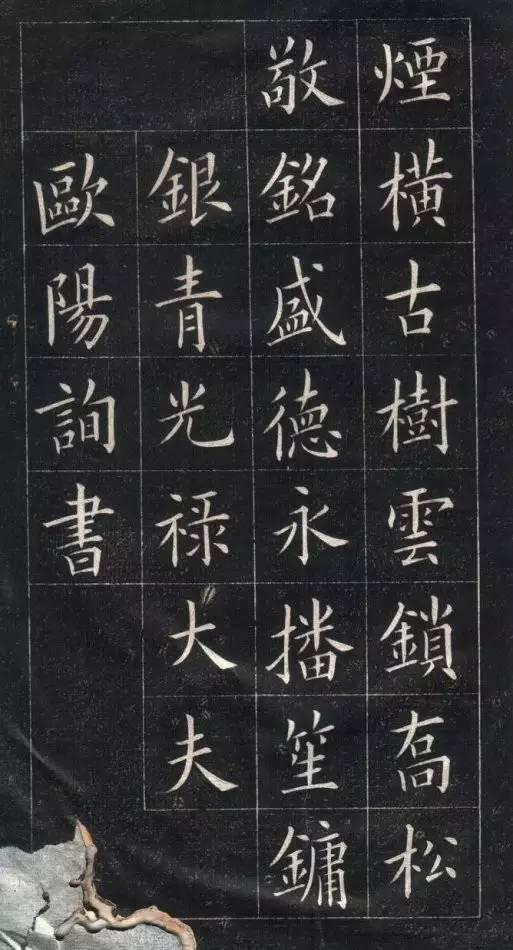 煙橫古樹雲鎖高松
敬銘盛德永播笙鏞
銀青光祿大夫
歐陽詢書